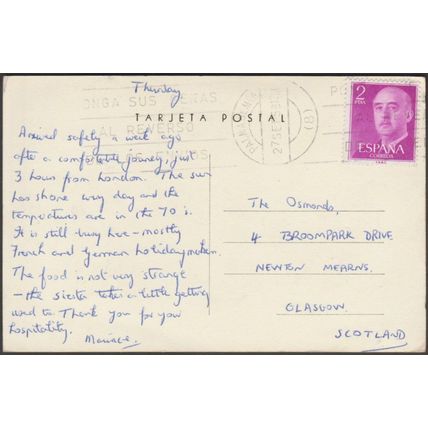 Thursday.
PONGA SUS SEÑAS
AL REVERSO
TARJETA POSTAL
27 SEP
(8)
2
PTAS
ESPAÑA
CORREOS
Arrived safely a week ago
after a comfortable journey, just
3 hours from London. The sun
has shone every day and the
temperatures are in the 70's.
It is still busy here - mostly
French and German holidaymakers.
The food is not very strange
- the siesta takes a little getting
used to. Thank you for your
hospitality.
The Osmonds,
4 BROOMPARK DRIVE
NEWTON MEARNS.
GLASGOW.
SCOTLAND